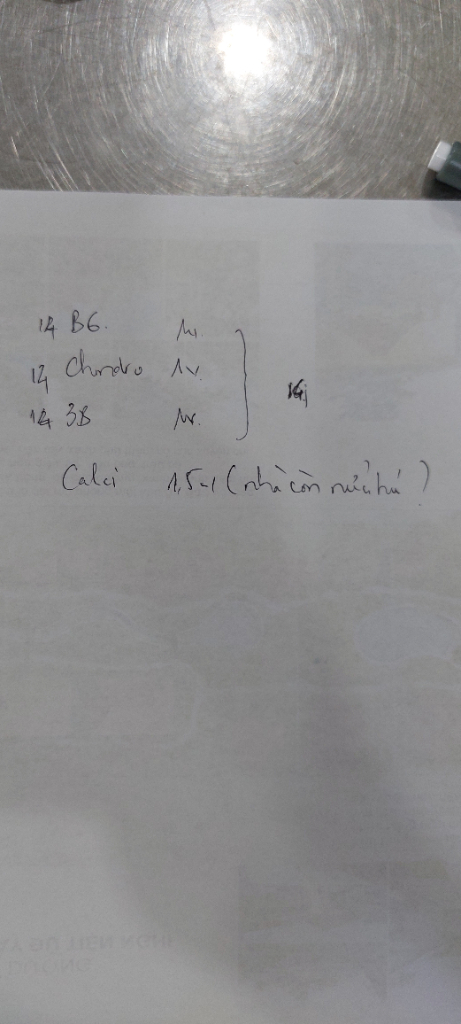 14 B6. 1v.
14 Chondro 1v.
14 3B 1v.
14
Calci 1,5-1 (nhà còn nửa hủ)